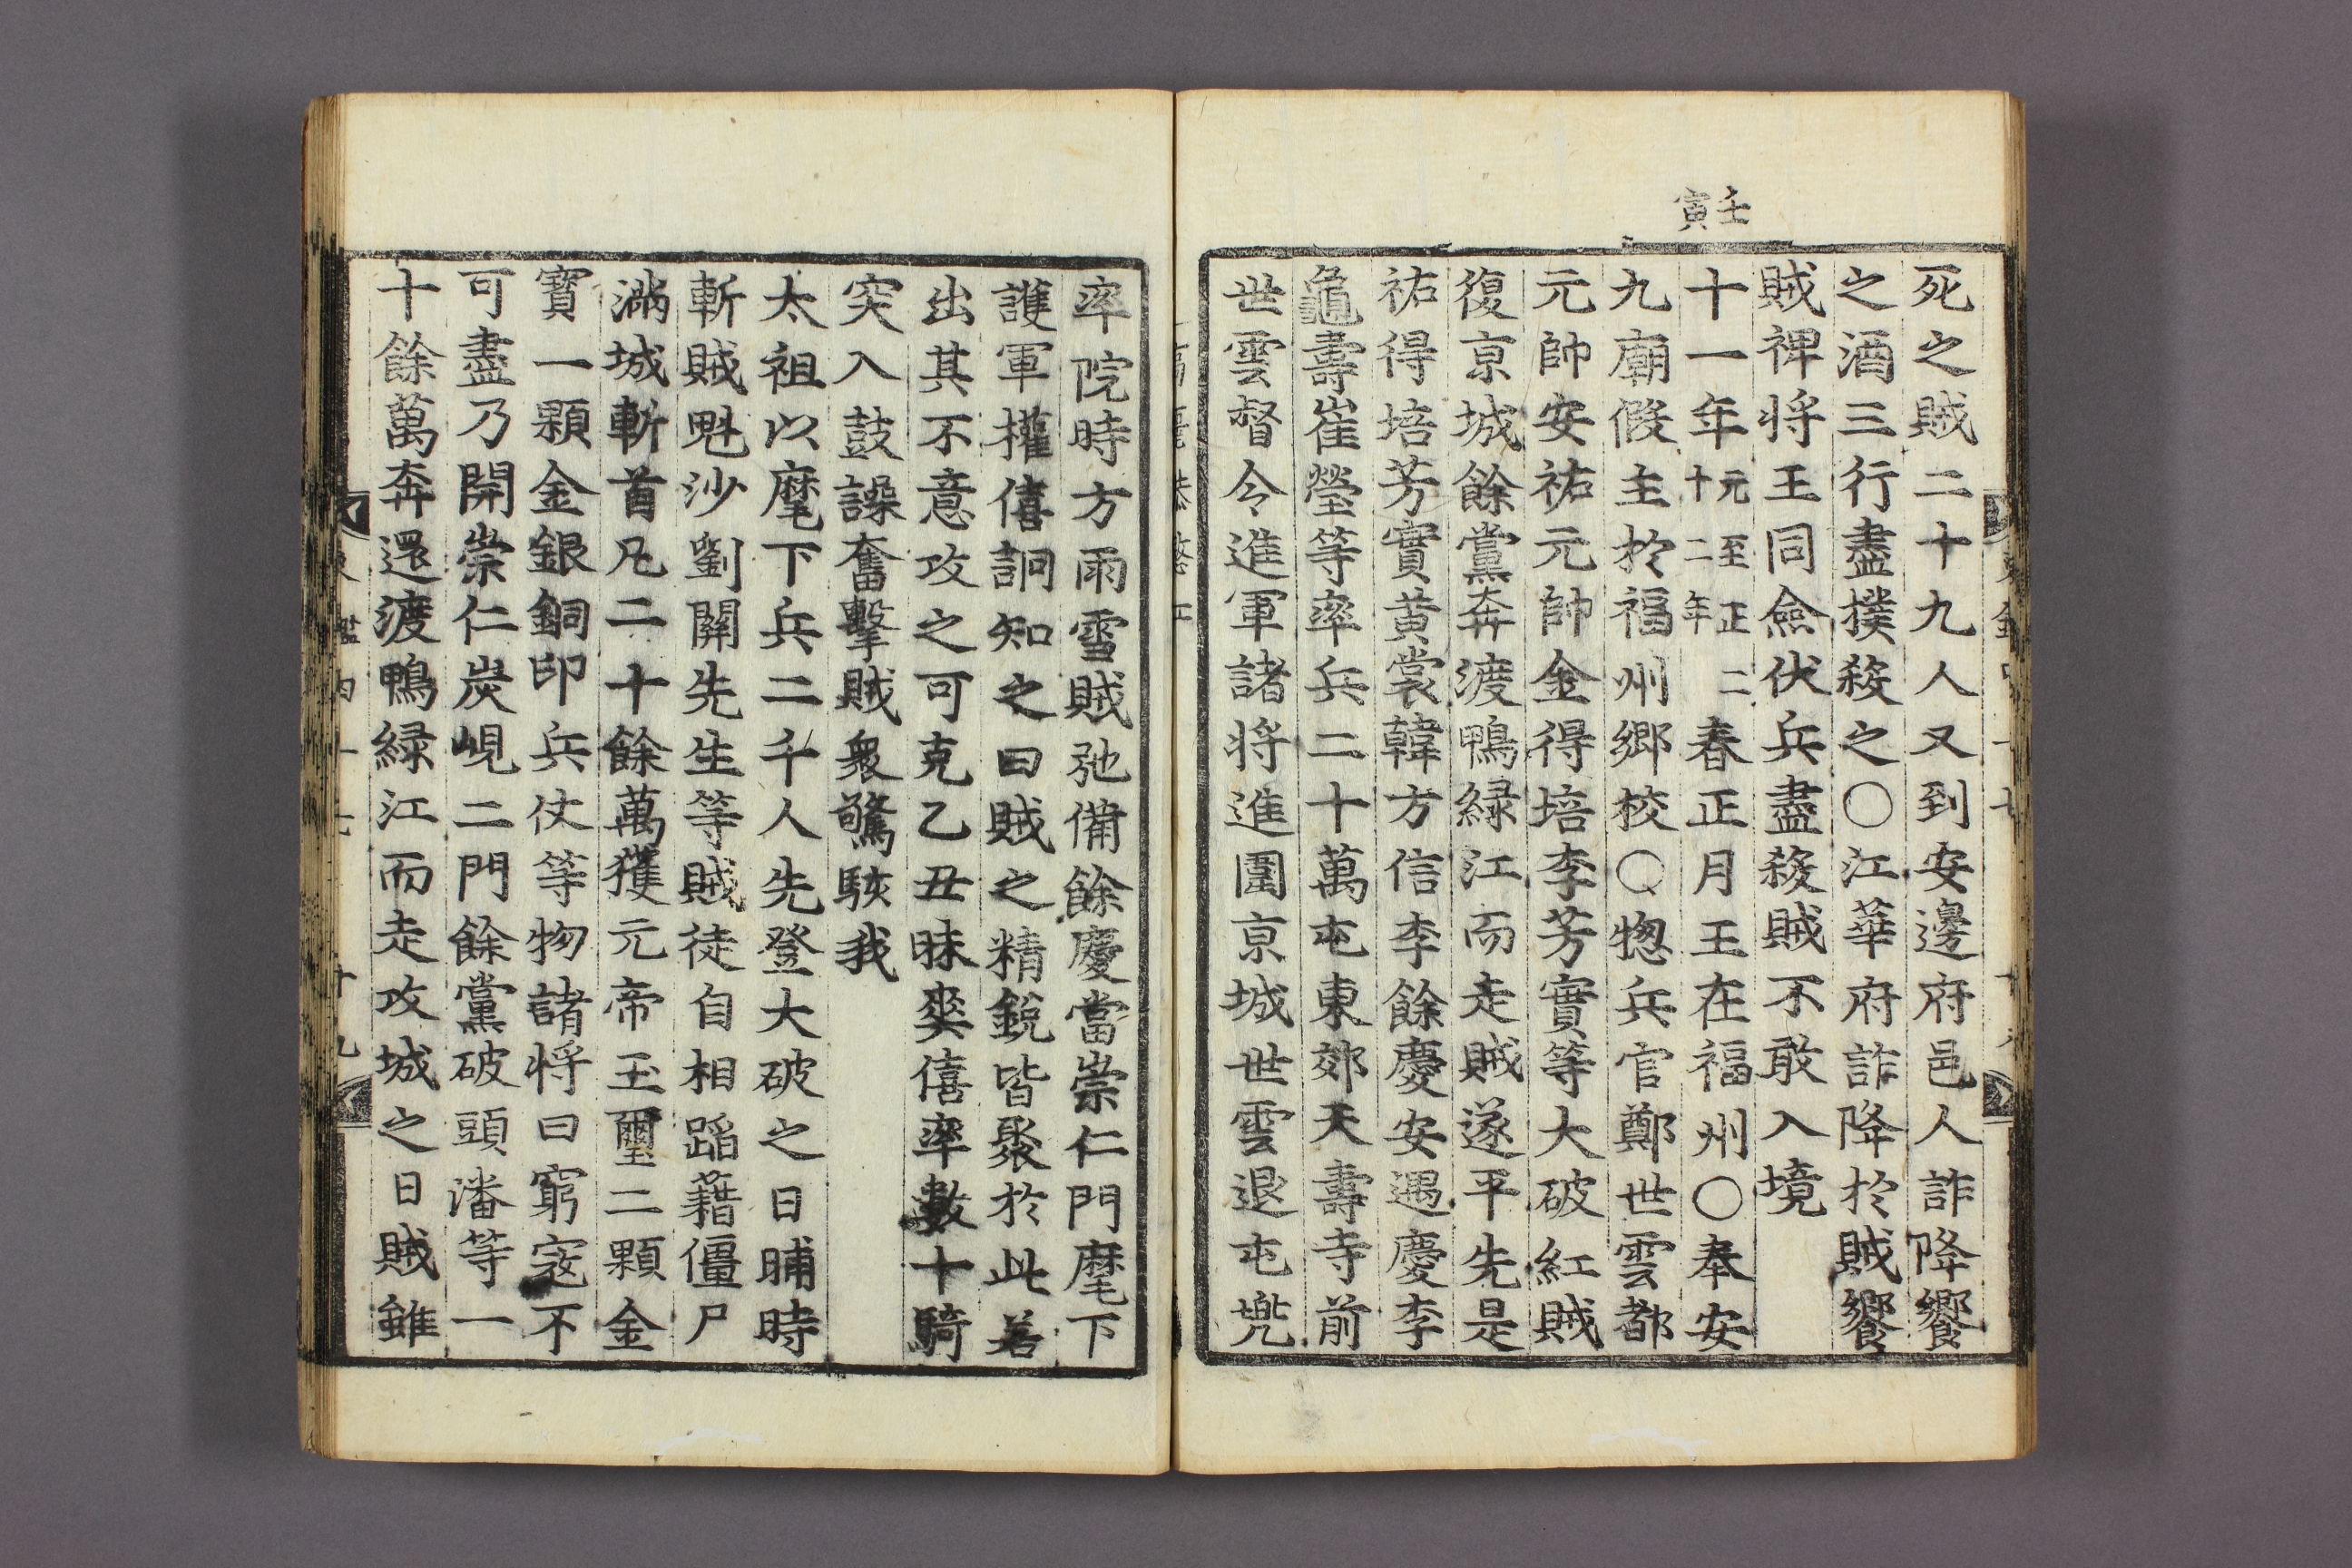 壬寅
死之賊二十九人又到安邊府邑人詐降饗
之酒三行盡撲殺之○江華府詐降於賊饗
賊裨將王同僉伏兵盡殺賊不敢入境
十一年元至正二十二年春正月王在福州○奉安
九廟假主於福州鄉校○惣兵官鄭世雲都
元帥安祐元帥金得培李芳實等大破紅賊
復京城餘黨奔渡鴨緑江而走賊遂平先是
祐得培芳實黄裳韓方信李餘慶安遇慶李
龜壽崔瑩等率兵二十萬屯東郊天壽寺前
世雲督令進軍諸將進圍京城世雲退屯兠
率院時方雨雪賊弛備餘慶當崇仁門麾下
護軍權僖詗知之曰賊之精銳皆聚於此若
出其不意攻之可克乙丑昧爽僖率數十騎
突入鼓譟奮擊賊衆驚駭我
太祖以麾下兵二千人先登大破之日晡時
斬賊魁沙劉關先生等賊徒自相蹈籍僵尸
滿城斬首凡二十餘萬獲元帝玉璽二顆金
寶一顆金銀銅印兵仗等物諸將曰窮寇不
可盡乃開崇仁炭峴二門餘黨破頭潘等一
十餘萬奔還渡鴨緑江而走攻城之日賊雖